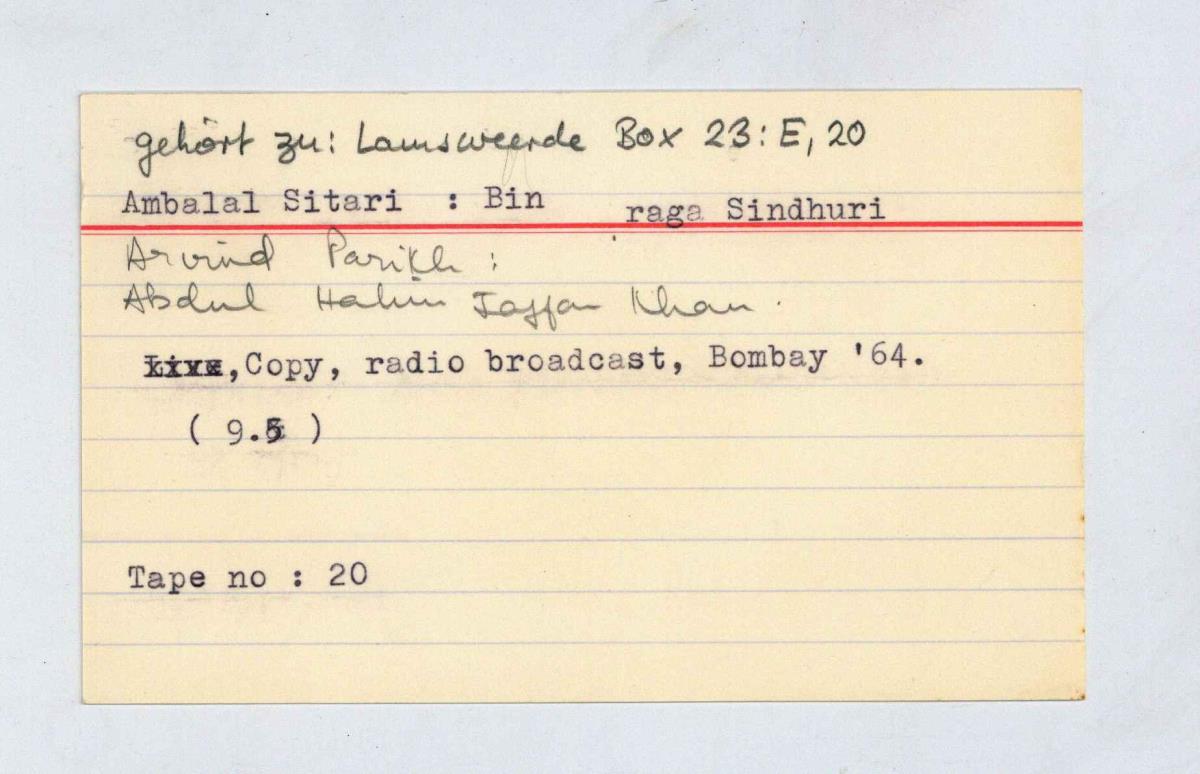 gehört zu: Lamsweerde Box 23: E, 20
Ambalal Sitari : Bin raga Sindhuri
Arvind Parikh :
Abdul Halim Jaffar Khan.
,Copy, radio broadcast, Bombay '64.
( 9.5 )
Tape no : 20